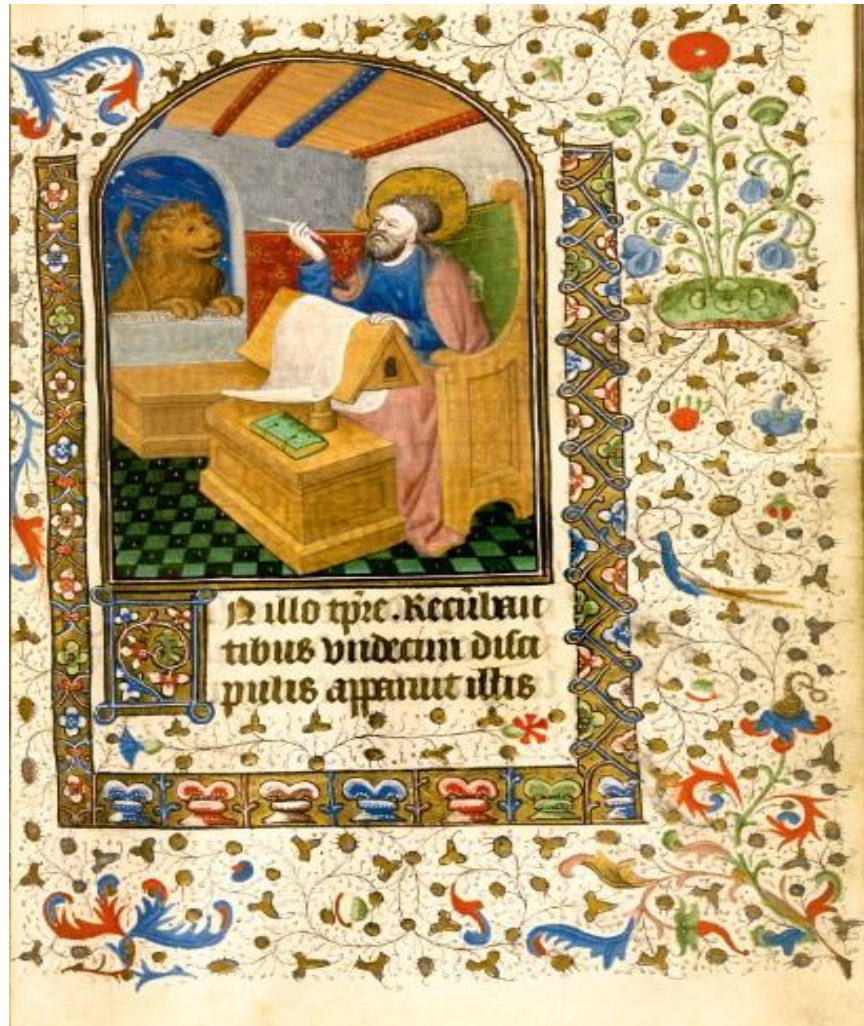 IN illo tp̄re. Recūbenti
tibus vndecim disci
pulis apparuit illis